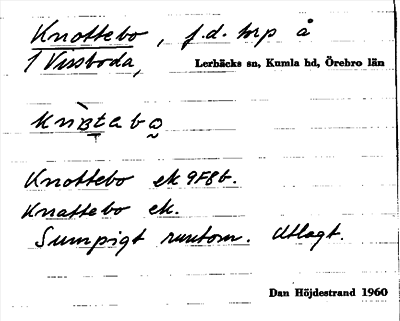 Knottebo, f.d. torp å
1 Vissboda,
Lerbäcks sn, Kumla hd, Örebro län
Knottebo ek 9F8b.
Knattebo ek.
Sumpigt runtom. Utlagt.
Dan Höjdestrand 1960